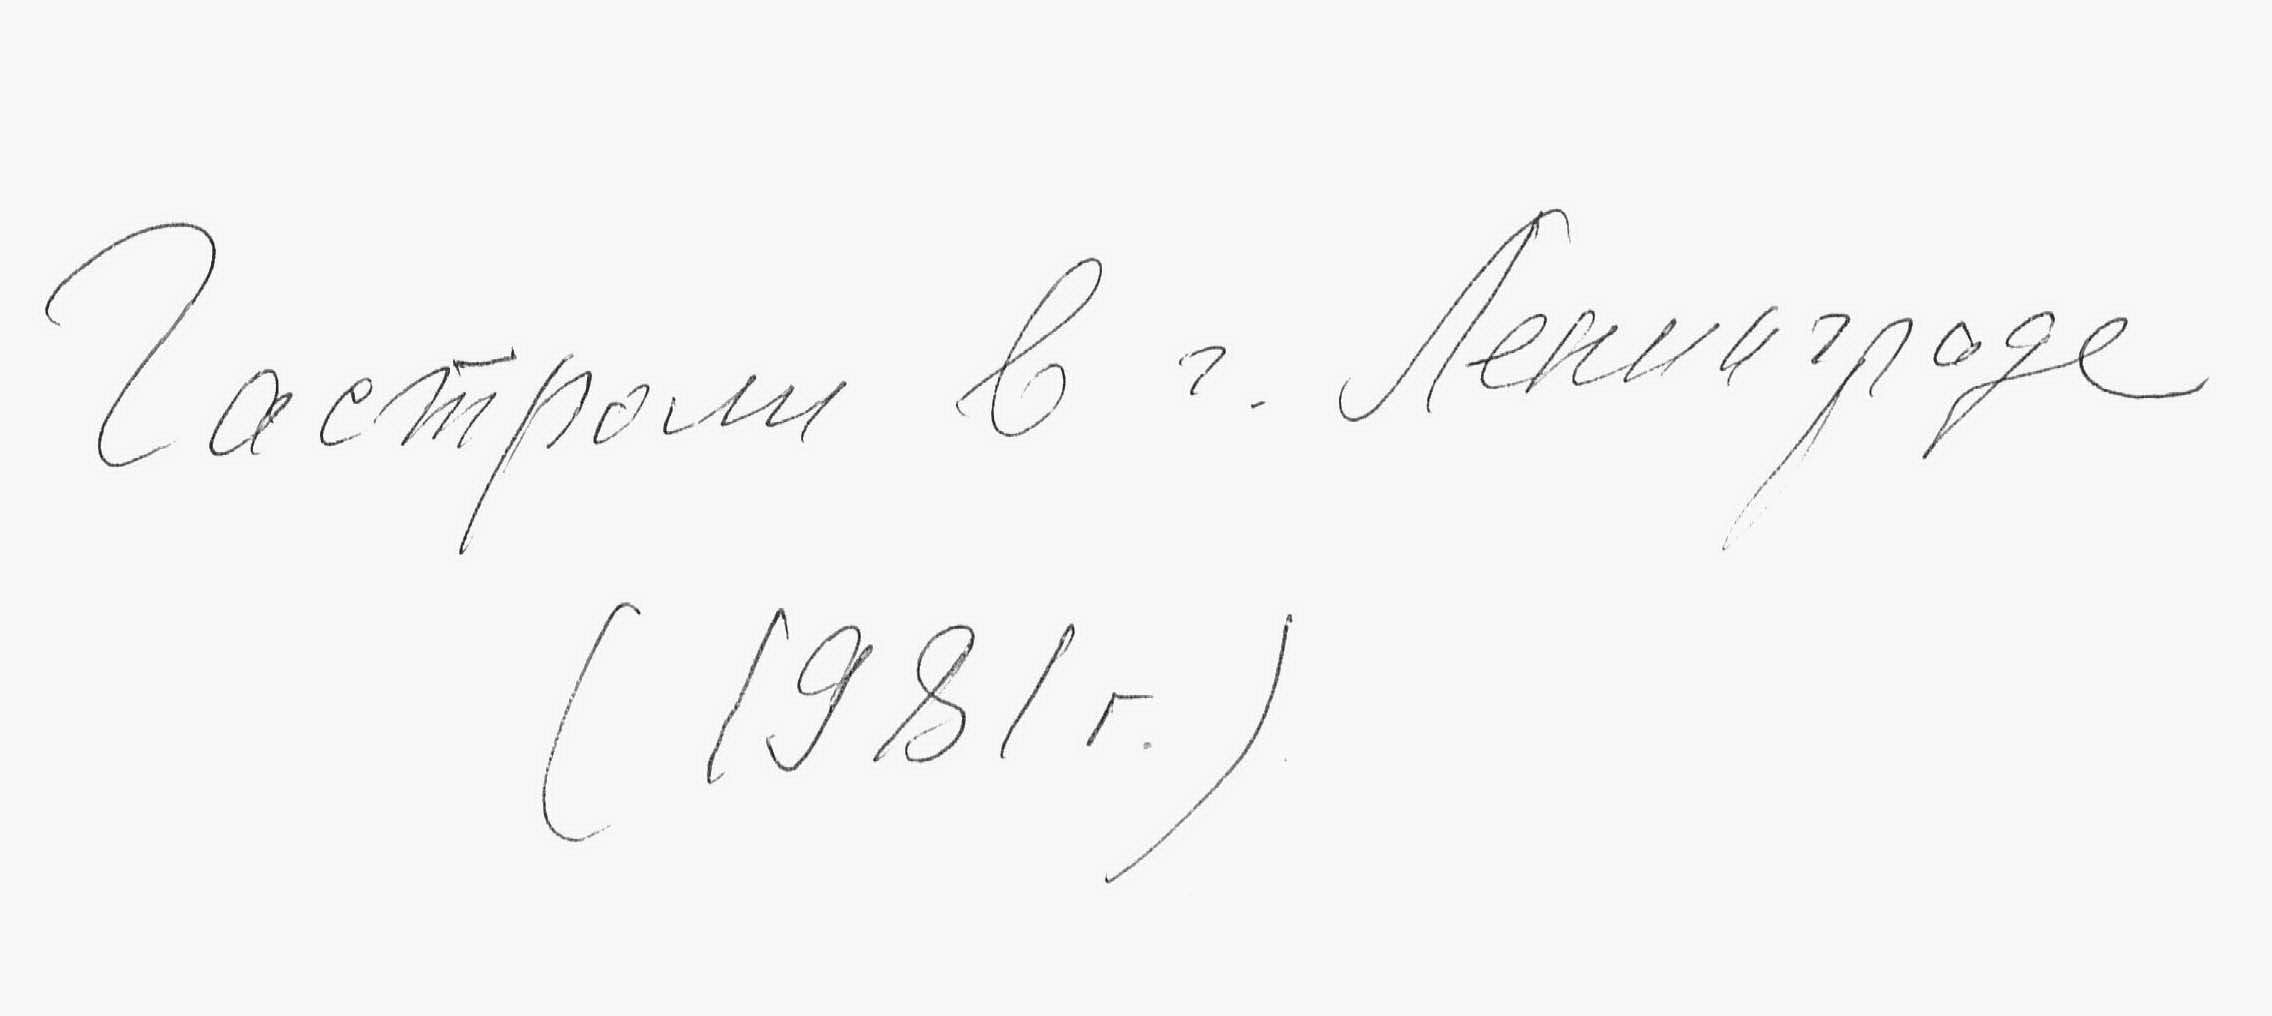 Гастроли в г. Ленинграде
(1981 г.)